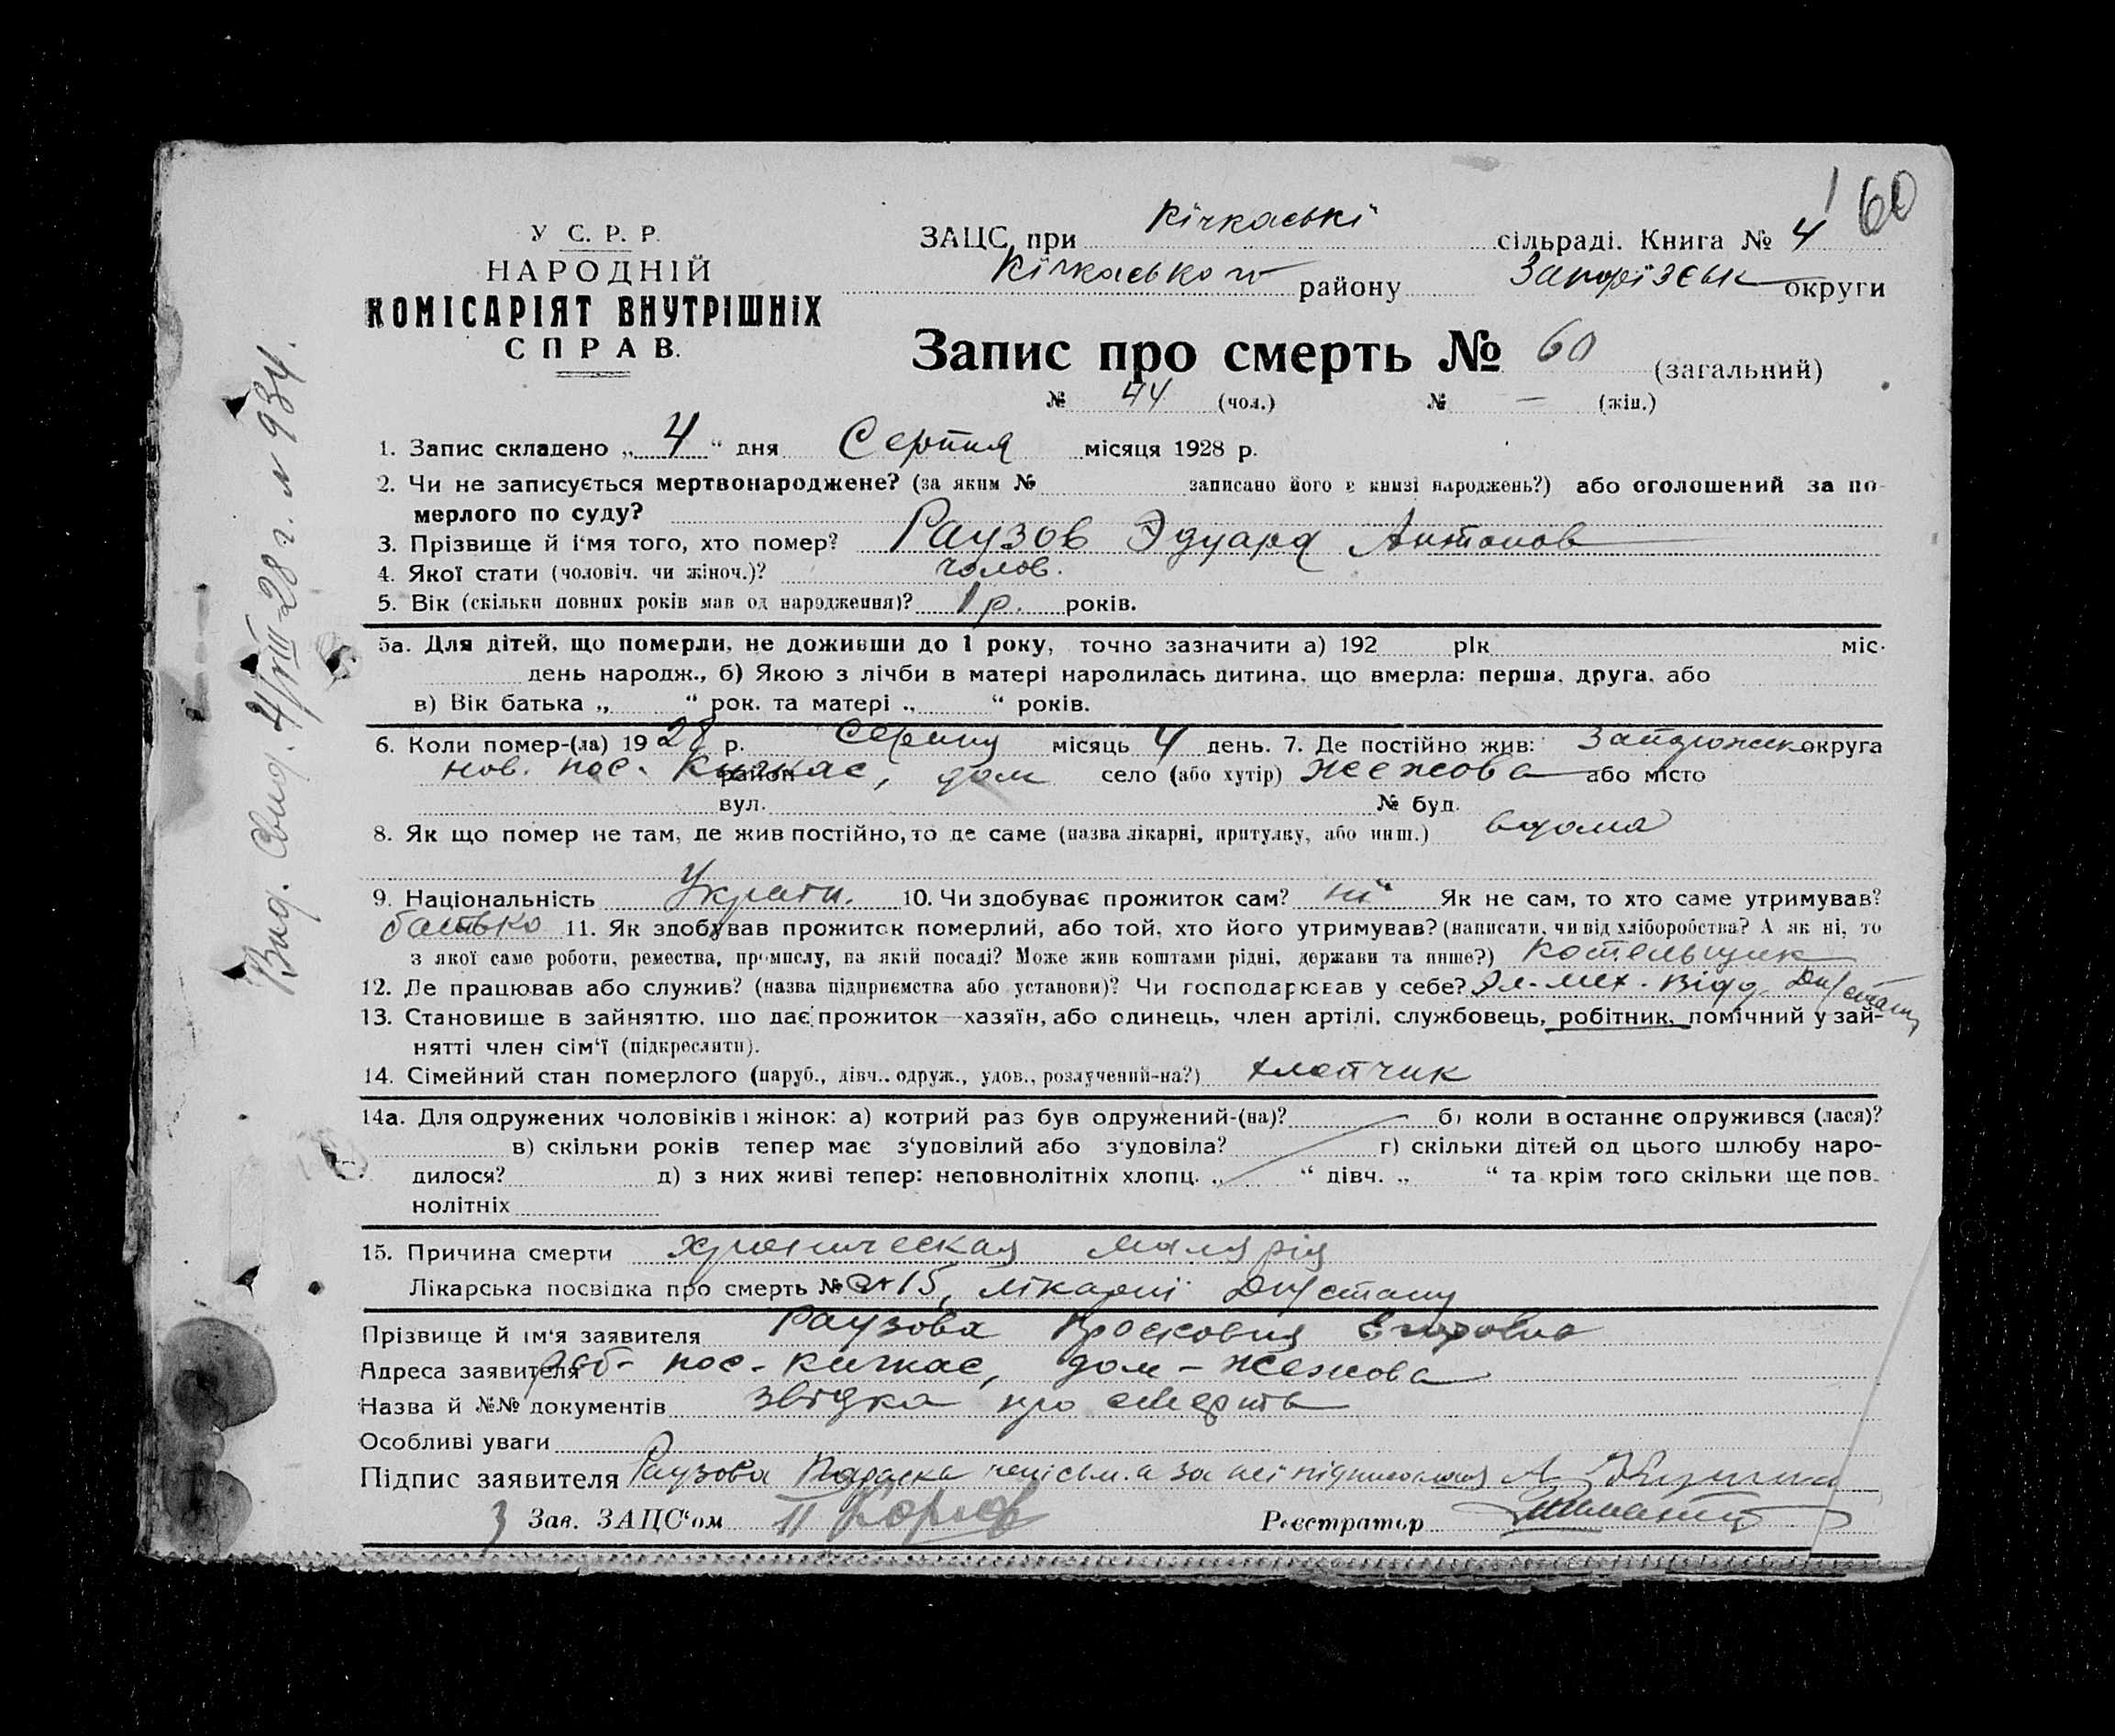 160
У С. Р. Р.
НАРОДНІЙ
КОМІСАРІЯТ ВНУТРІШНІХ
СПРАВ.
ЗАЦС при Кічкаські сільраді. Книга № 4
Кічкаського району Запорізськ округи
Запис про смерть № 60 (загальний)
№ 44 (чол.) № — (жін.)
1. Запис складено „ 4 “ дня Серпня місяця 1928 р.
2. Чи не записується мертвонароджене? (за яким № записано його в книзі народжень?) або оголошений за по-
мерлого по суду?
3. Прізвище й і‘мя того, хто помер? Раузов Эдуард Антонов
4. Якої стати (чоловіч. чи жіноч.)? чолов.
5. Вік (скільки повних років мав од народження)? 1 р. років.
5а. Для дітей, що померли, не доживши до 1 року, точно зазначити а) 192 рік міс.
день народж., б) Якою з лічби в матері народилась дитина, що вмерла: перша, друга, або
в) Вік батька „ “ рок. та матері „ “ років.
6. Коли помер-(ла) 1928 р. Серпня місяць 4 день. 7. Де постійно жив: округа
нов. пос. Кичкас, район дом село (або хутір) Жежова або місто
вул. № буд.
8. Як що помер не там, де жив постійно, то де саме (назва лікарні, притулку, або инш.) вдома
9. Національність Украін. 10. Чи здобуває прожиток сам? ні Як не сам, то хто саме утримував?
батько 11. Як здобував прожиток померлий, або той, хто його утримував? (написати, чи від хліборобства? А як ні, то
з якої саме роботи, ремества, промислу, на якій посаді? Може жив коштами рідні, держави та инше?) Котельщик
12. Де працював або служив? (назва підприємства або установи)? Чи господарював у себе? Эл.-мех. Відд. Дн/стану
13. Становище в зайняттю, що дає прожиток—хазяїн, або одинець, член артілі, службовець, робітник, помічний у зай-
нятті член сім‘ї (підкреслити).
14. Сімейний стан померлого (паруб., дівч., одруж., удов., розлучений-на?) хлопчик
14а. Для одружених чоловіків і жінок: а) котрий раз був одружений-(на)? б) коли в останнє одружився (лася)?
в) скільки років тепер має з‘удовілий або з‘удовіла? г) скільки дітей од цього шлюбу наро-
дилося? д) з них живі тепер: неповнолітніх хлопц. „ “ дівч. „ “ та крім того скільки ще пов-
нолітніх
15. Причина смерти хроническая малярія
Лікарська посвідка про смерть № 15, лікарні Дн/стану
Прізвище й ім‘я заявителя Раузова Просковия Егоровна
Адреса заявителя раб- пос- Кичкас, дом - Жежова
Назва й №№ документів звідка про смерть
Особливі уваги
Підпис заявителя Раузова Параска неписьм. а за неї підписалася А
З Зав. ЗАЦС‘ом П Реєстратор
Вид. Свид. 4/VIII-28 г. № 934.